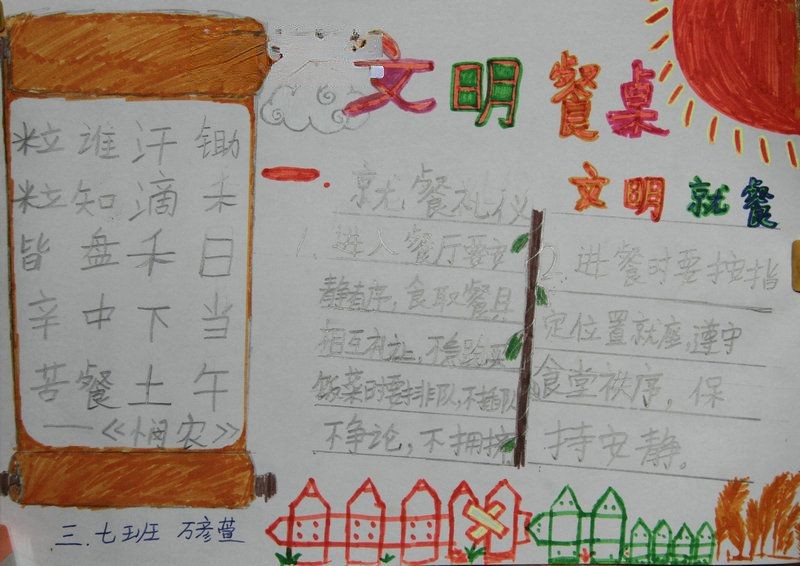 文明餐桌
文明就餐
锄禾日当午
汗滴禾下土
谁知盘中餐
粒粒皆辛苦
——《悯农》
一.就餐礼仪
1.进入餐厅要安
静有序,取餐具
相互礼让,不
饭菜时要排队,不插队
不争论,不拥挤
2.进餐时要按指
定位置就座,遵守
食堂秩序,保
持安静。
三.七班 万彦萱